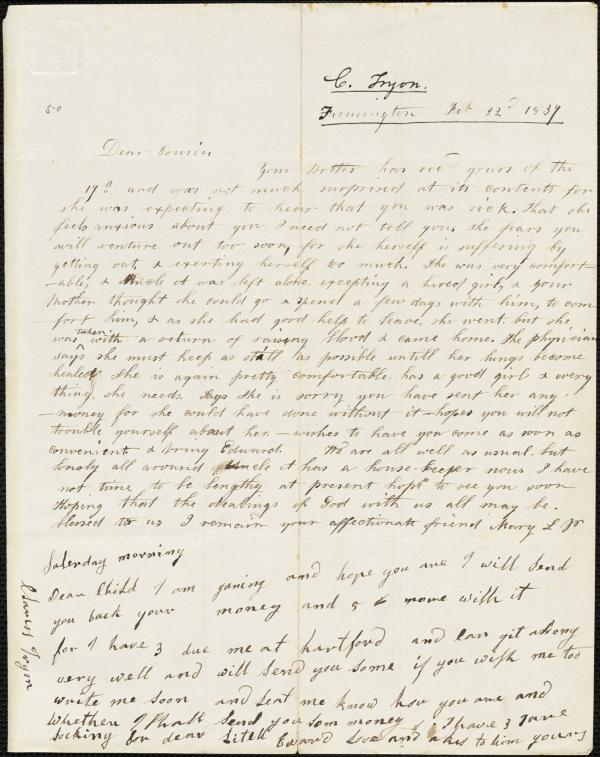 50
C. Tryon.
Farmington Feb 22d 1839
Dear Cousin
Your Mother has recd yours of the
19th and was not much surprised at its contents for
she was expecting to hear that you was sick. That she
feels anxious about you I need not tell you, she fears you
will venture out too soon, for she herself is suffering by
getting out, & exerting herself too much. She was very comfort-
-able, & Uncle A was left alone excepting a hired girl, & your
Mother thought she could go & spend a few days with him, to com
fort him, & as she had good help to leave, she went but she
was taken with a return of raising blood & came home. The physician
says she must keep as still as possible untill her lungs become
healed She is again pretty comfortable. has a good girl & every
thing she needs. Says she is sorry you have sent her any-
-money for she could have done without it - hopes you will not
trouble yourself about her. - wishes to have you come as soon as
convenient & bring Edward. We are all well as usual. but
lonely all around Uncle A has a house-keeper now. I have
not time to be lengthy at present hope to see you soon
Hoping that the dealings of God with us all may be
blessed to us I remain your affectionate friend Mary L
Saterday morning
Dear Child I am ganing and hope you are I will send
you back your money and 5 more with it
for I have 3 due me at hartford and can git along
very well and will send you some if you wish me too
write me soon and leat me know how you are and
whether I shall send you som money I have 3 pare
socking for dear Litell Edward Love and a kis to him yours
Clarris Tryon